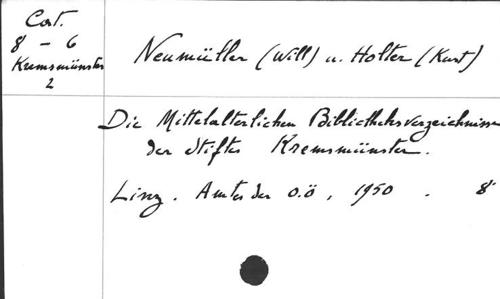 Cat.
8 - 6
Kremsmünster
2
Neumüller (Will) u. Holter (Kurt)
Die Mittelalterlichen Bibliotheksverzeichnisse
der Stiftes Kremsmünster.
Linz. Amtes der O.Ö, 1950. 8°